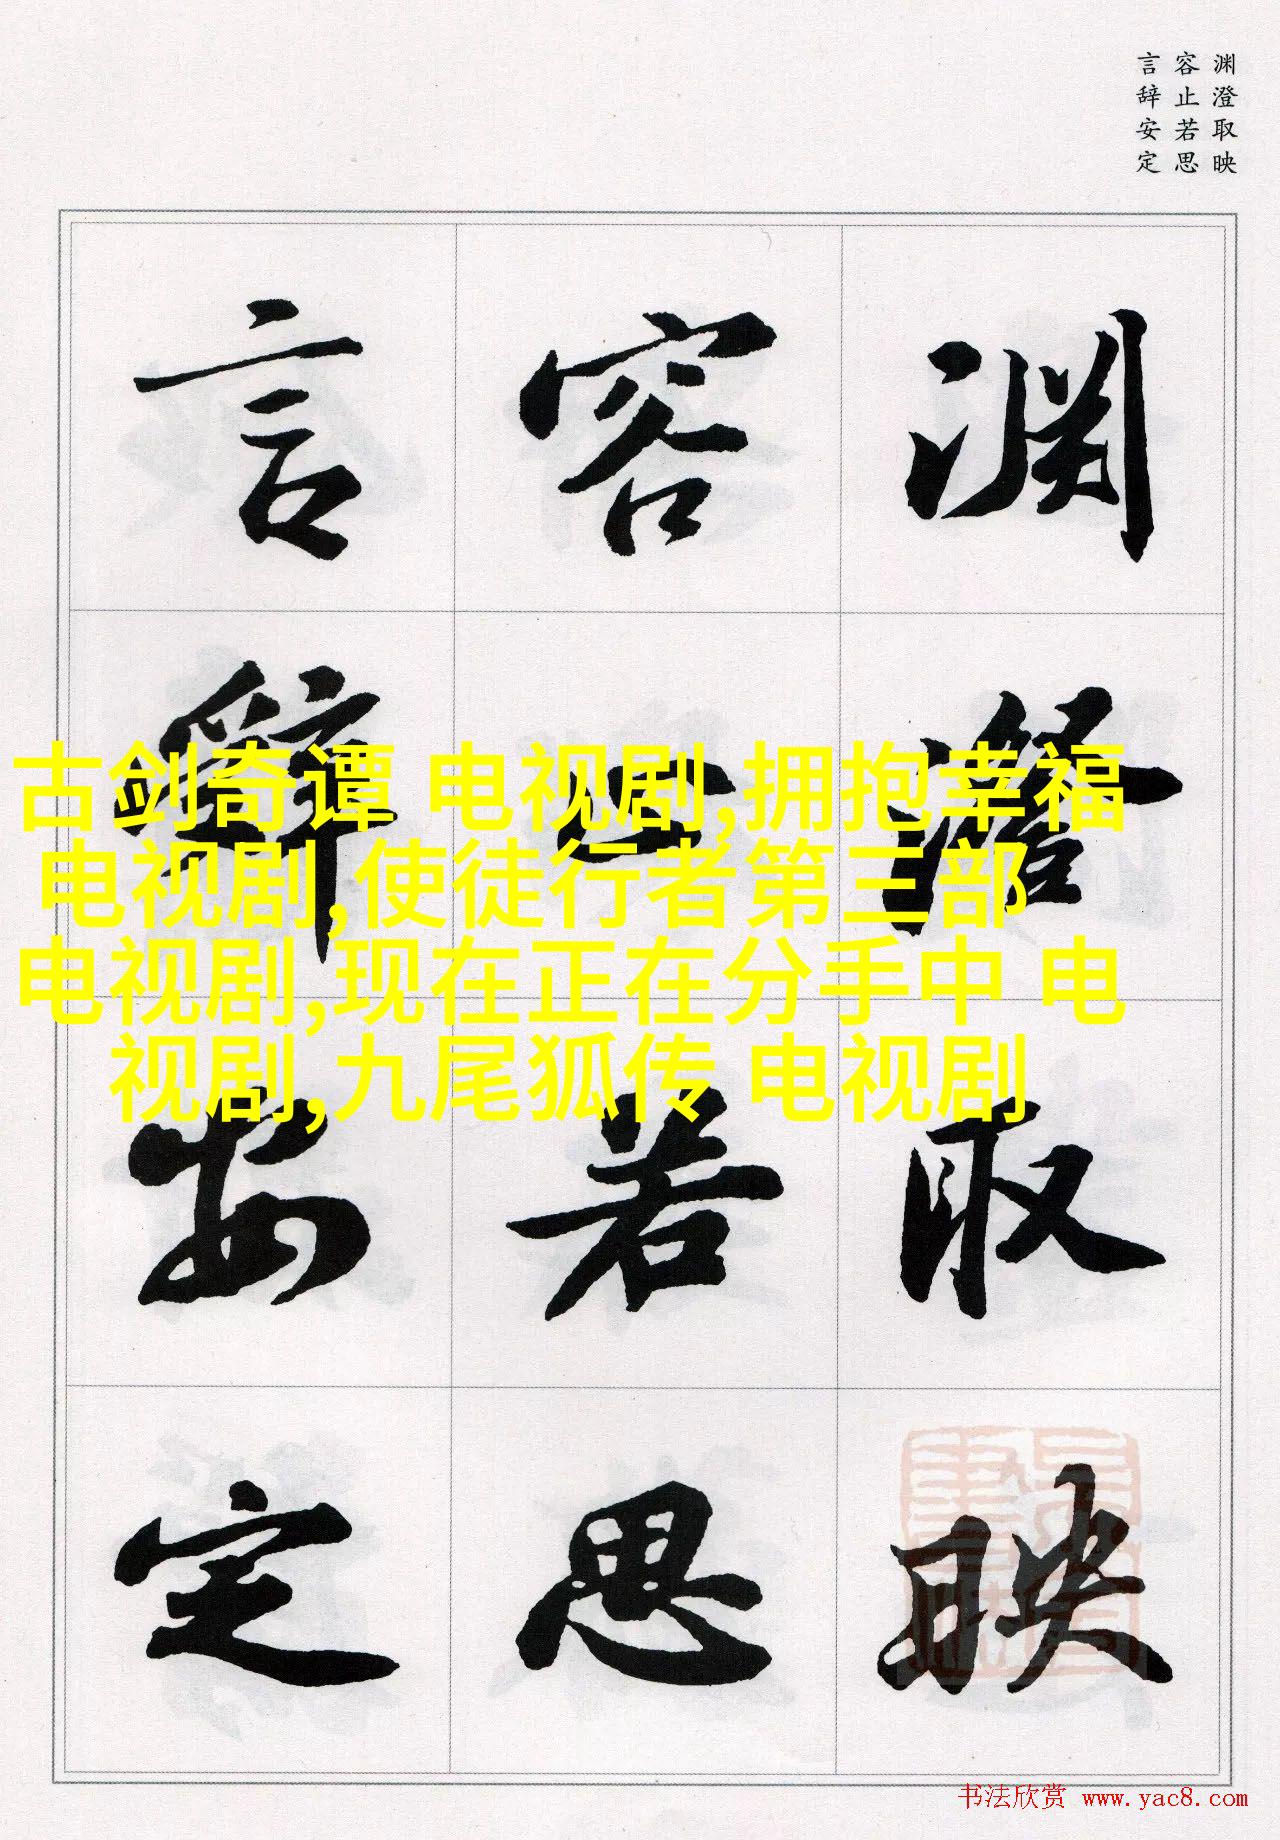 渊澄取映
容止若思
言辞安定
渊澄取映
容止若思
言辞安定
古剑奇谭 电视剧,拥抱幸福
电视剧,使徒行者第三部
电视剧,现在正在分手中 电
视剧,九尾狐传 电视剧
书法欣赏 www.yac8.com